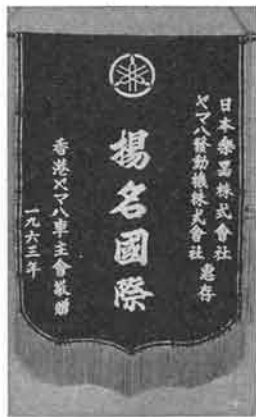 日本樂器株式會社
ヤマハ發動機株式會社 惠存
揚名國際
香港ヤマハ車主會敬贈
一九六三年